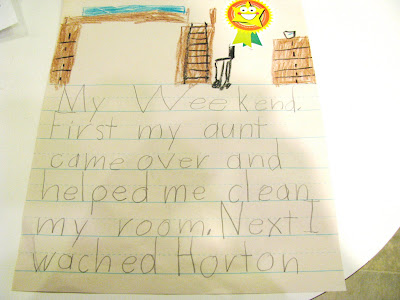 My Weekend.
First my aunt
came over and
helped me clean
my room. Next I
wached Horton